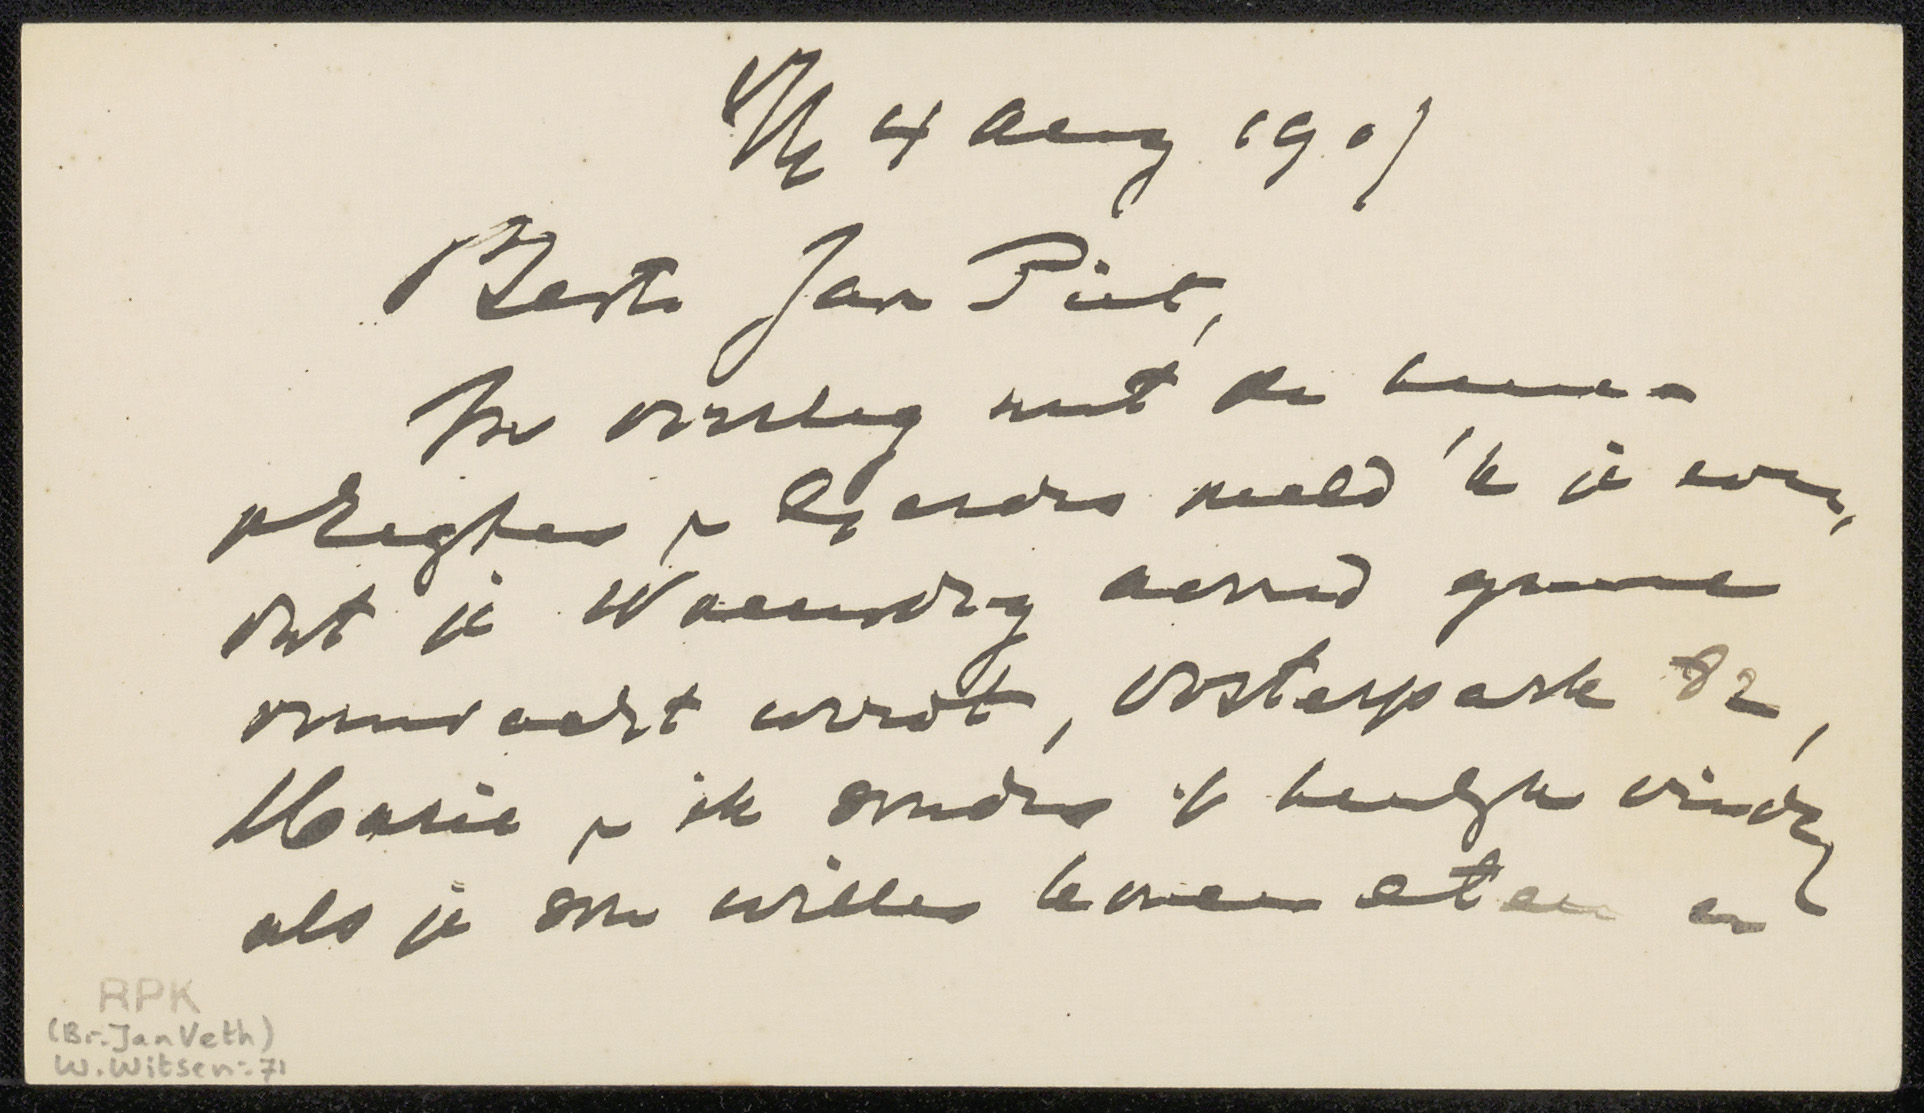 4 Aug 1901
Beste Jan Piet,
In overleg met de
meld 'k je even,
dat je Woensdag avond gaarne
verwacht wordt, Oosterpark 82,
Marie & ik zouden 't heerlijk vinden
als je zou willen komen eten en
RPK
(Br. Jan Veth)
W. Witsen:. 71